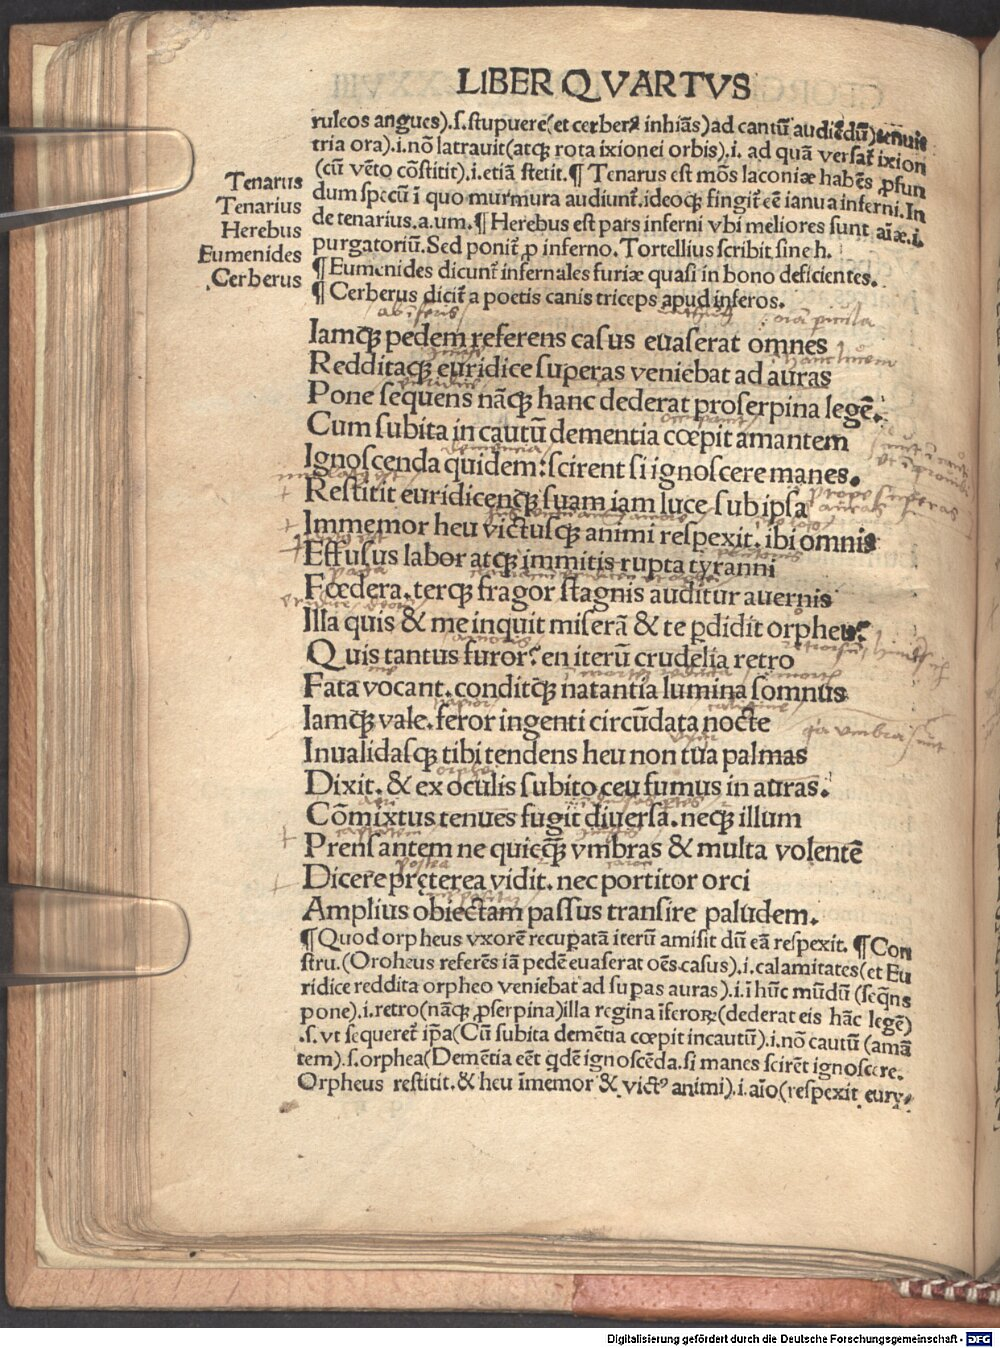 LIBER QVARTVS
ruleos angues).ſ.ſtupuere(et cerberꝰ inhiãs)ad cantũ audiẽdũ)
tria ora).i.nõ latrauit(atqꝫ rota ixionei orbis).i. ad quã verſat̃ ixion
(cũ vẽto cõſtitit).i.etiã ſtetit.¶ Tenarus eſt mõs laconiæ habẽs ꝓfun
dum ſpecũ ĩ quo murmura audiunt̃.ideoqꝫ fingit̃ eẽ ianua inferni.In
de tenarius.a.um.¶ Herebus eſt pars inferni vbi meliores ſunt aĩæ.i.
purgatoriũ.Sed ponit̃ ꝓ inferno.Tortellius ſcribit ſine h.
¶ Eumenides dicunt̃ infernales furiæ quaſi in bono deficientes.
¶ Cerberus dicit̃ a poetis canis triceps apud inferos.
Tenarus
Tenarius
Herebus
Eumenides
Cerberus
Iamqꝫ pedem referens caſus euaſerat omnes
Redditaqꝫ euridice ſuperas veniebat ad auras
Pone ſequens nãqꝫ hanc dederat proſerpina legẽ.
Cum ſubita in cautũ dementia cœpit amantem
Ignoſcenda quidem:ſcirent ſi ignoſcere manes.
Reſtitit euridicenqꝫ ſuam iam luce ſub ipſa
Immemor heu victuſqꝫ animi reſpexit. ibi omnis
Effuſus labor atqꝫ immitis rupta tyranni
Fœdera.terqꝫ fragor ſtagnis auditur auernis
Illa quis & me inquit miſerã & te ꝑdidit orpheu?
Quis tantus furor? en iterũ crudelia retro
Fata vocant.conditqꝫ natantia lumina ſomnus
Iamqꝫ vale.feror ingenti circũdata nocte
Inualidaſqꝫ tibi tendens heu non tua palmas
Dixit. & ex oculis ſubito ceu fumus in auras.
Cõmixtus tenues fugit diuerſa.neqꝫ illum
Prenſantem ne quicqꝫ̃ vmbras & multa volentẽ
Dicere pręterea vidit.nec portitor orci
Amplius obiectam paſſus tranſire paludem.
¶ Quod orpheus vxorẽ recuꝑatã iterũ amiſit dũ eã reſpexit. ¶ Con
ſtru.(Oroheus referẽs iã pedẽ euaſerat oẽs caſus).i.calamitates(et Eu
ridice reddita orpheo veniebat ad ſuꝑas auras).i.ĩ hũc mũdũ (ſeq̃ns
pone).i.retro(nãqꝫ ꝓſerpina)illa regina ĩferoꝝ(dederat eis hãc legẽ)
.ſ.vt ſequeret̃ ip̃a(Cũ ſubita demẽtia cœpit incautũ).i.nõ cautũ (amã
tem).ſ.orphea(Demẽtia eẽt q̃dẽ ignoſcẽda.ſi manes ſcirẽt ignoſcere.
Orpheus reſtitit.& heu ĩmemor & victꝰ animi).i.aĩo(reſpexit eury-
Digitalisierung gefördert durch die Deutsche Forschungsgemeinschaft - DFG